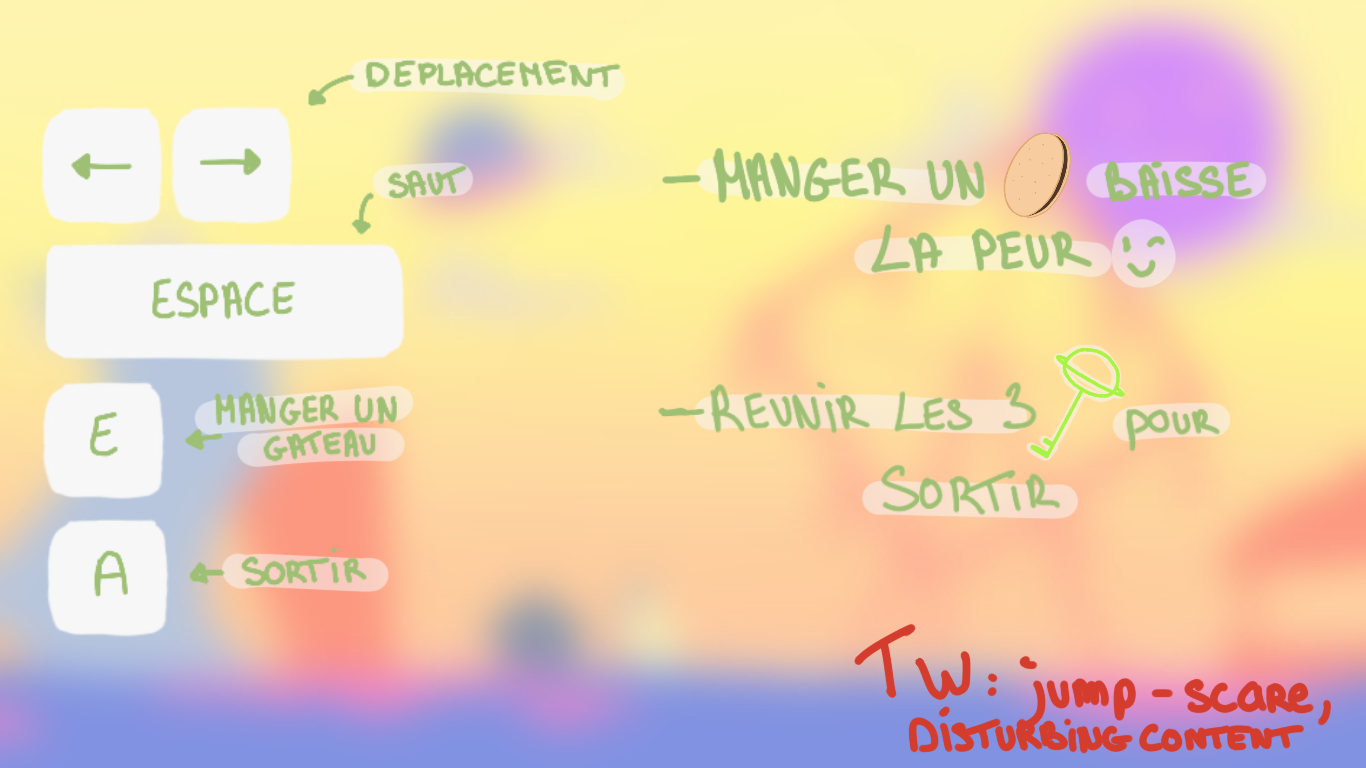 DEPLACEMENT
← →
SAUT
ESPACE
E
MANGER UN
GATEAU
A
SORTIR
— MANGER UN BAISSE
LA PEUR
— REUNIR LES 3 POUR
SORTIR
TW: jump-scare,
DISTURBING CONTENT